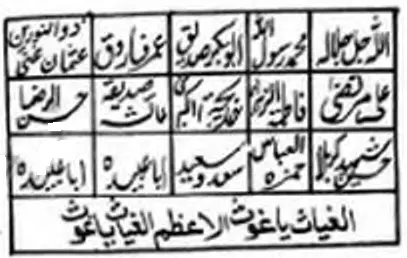 اللہ جل جلالہ محمد رسول اللہ ابوبکر صدیق عمر فاروق ذوالنورین عثمان غنی
علی مرتضی فاطمۃ الزہرا خدیجۃ الکبری عائشہ صدیقہ حسن الرضا
حسین شہید کربلا العباس حمزہ سعد وسعید اباعبیدہ اباعبیدہ
الغیاث یا غوث الاعظم الغیاث یا غوث